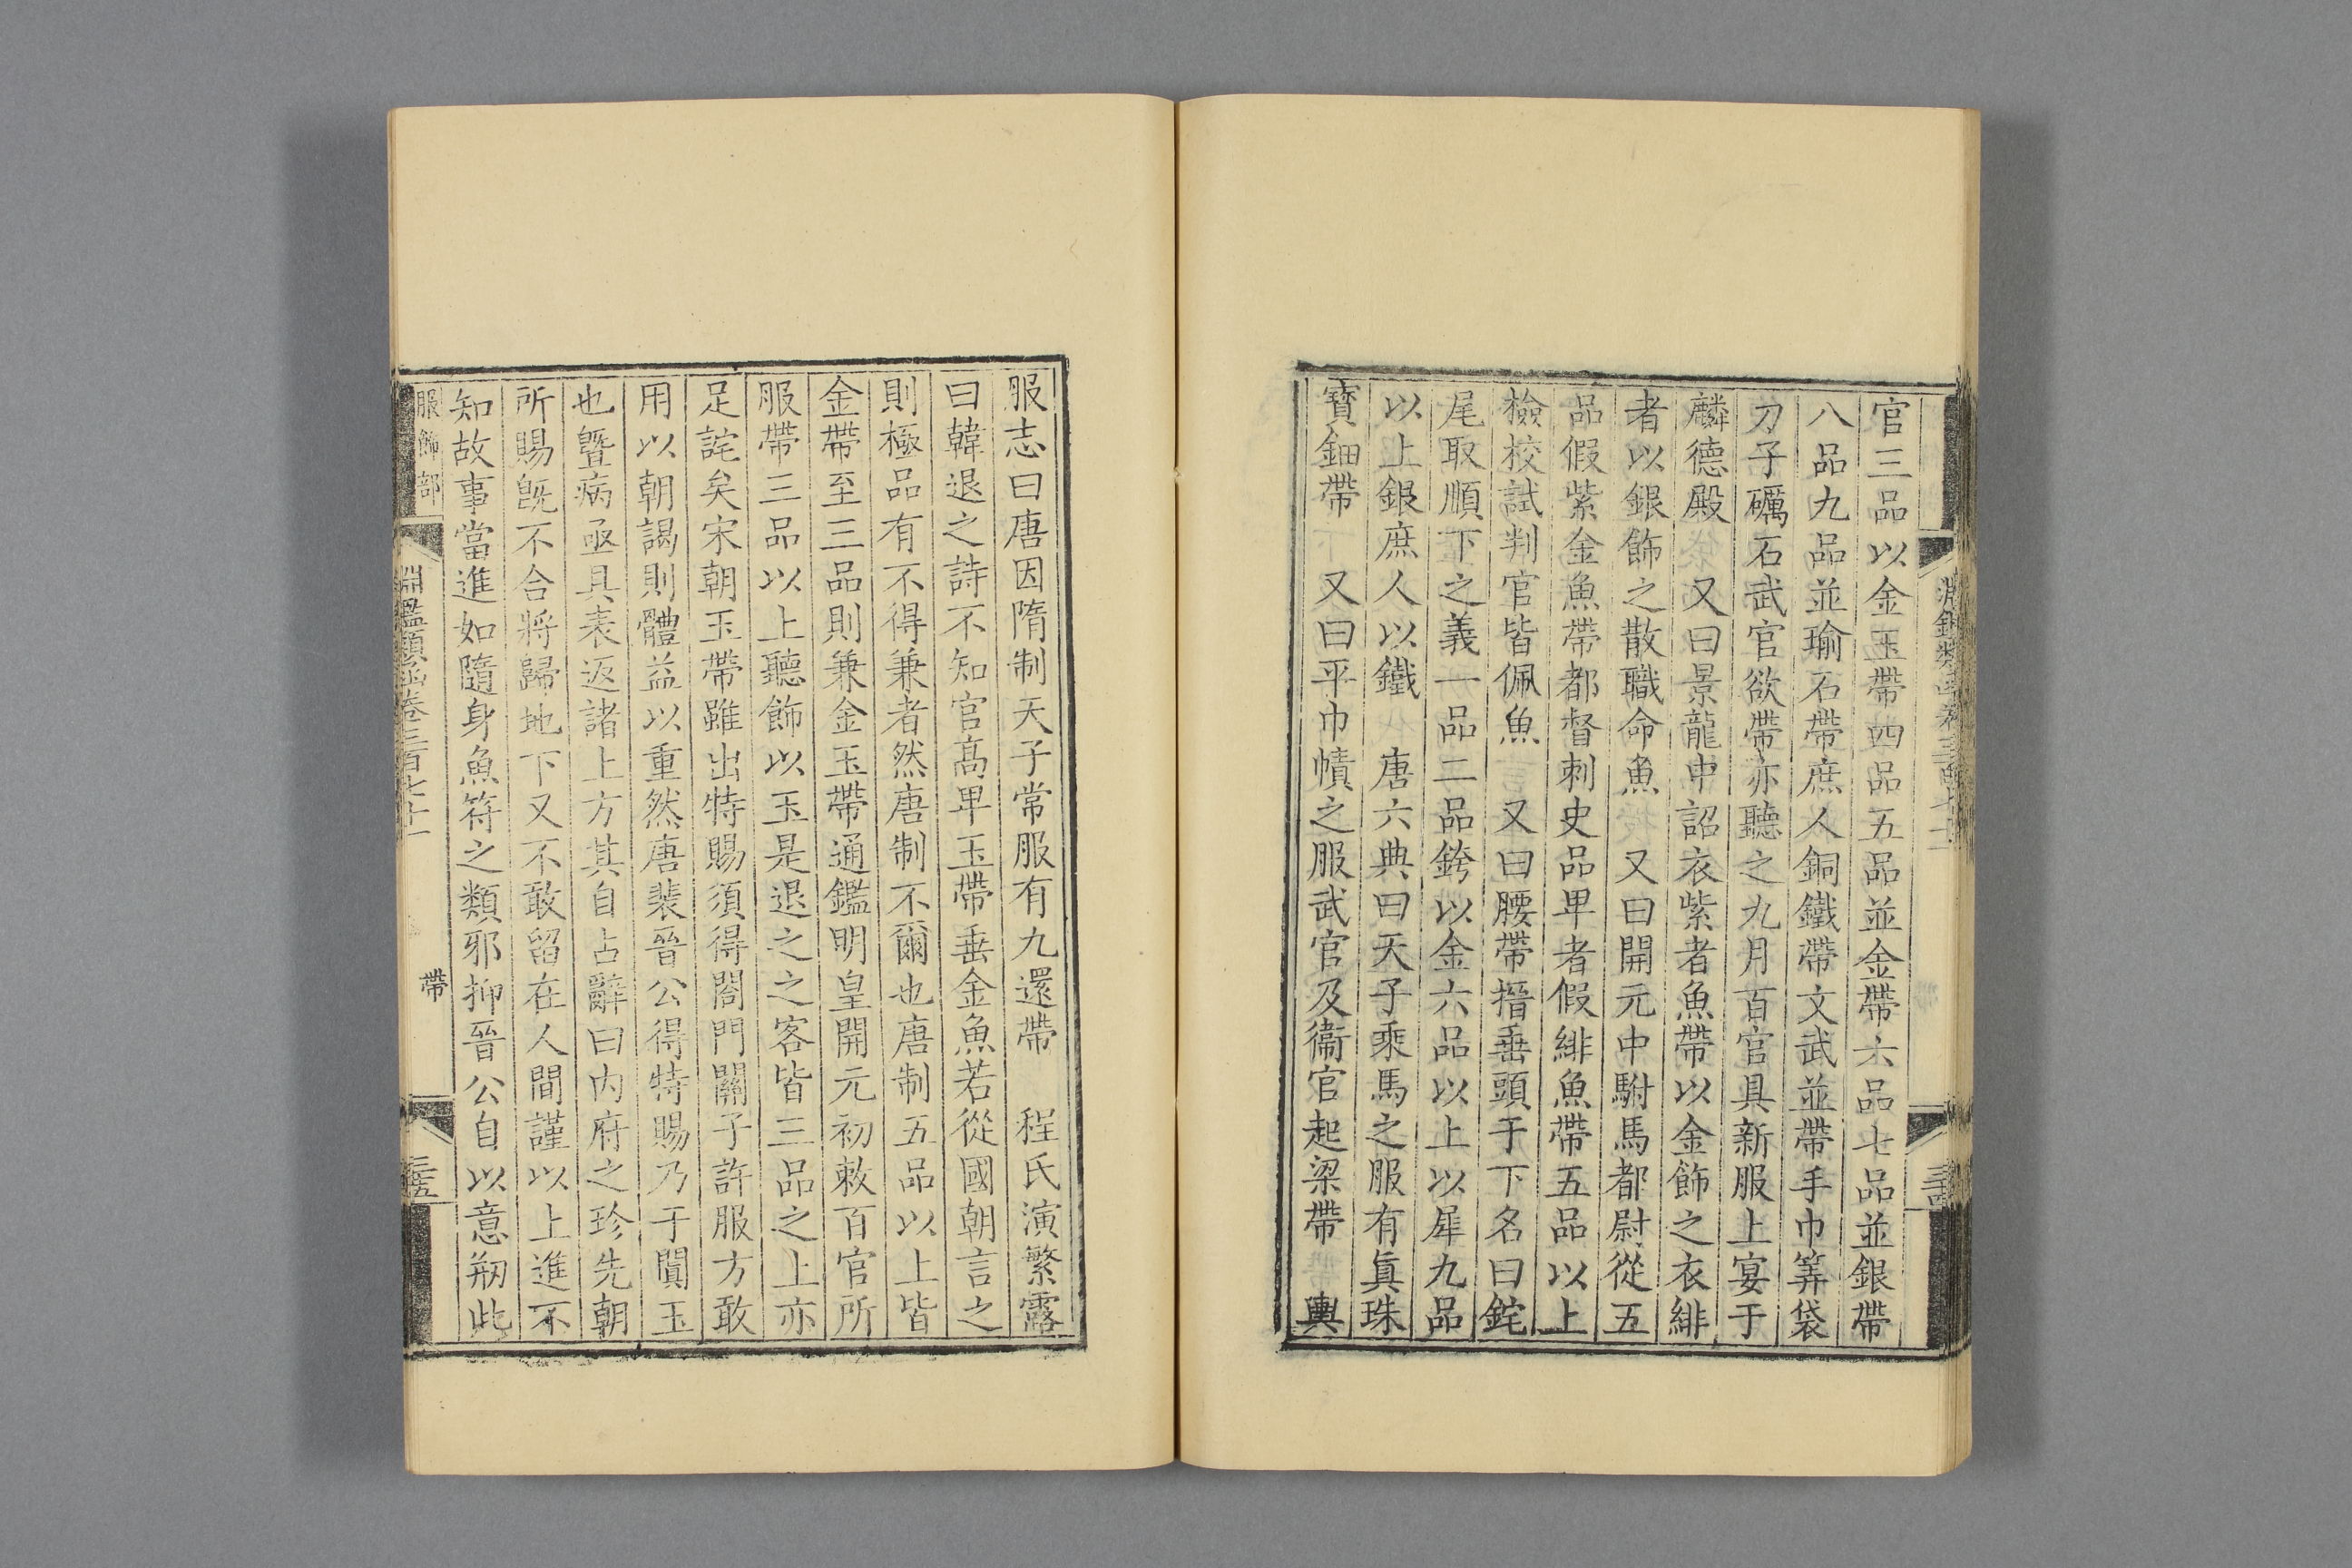 官三品以金玉帶四品五品並金帶六品七品並銀帶
八品九品並瑜石帶庶人銅鐵帶文武並帶手巾筭袋
刀子礪石武官欲帶亦聽之九月百官具新服上宴于
麟德殿　又曰景龍中詔衣紫者魚帶以金飾之衣緋
者以銀飾之散職命魚　又曰開元中駙馬都尉從五
品假紫金魚帶都督刺史品卑者假緋魚帶五品以上
檢校試判官皆佩魚　又曰腰帶搢垂頭于下名曰鉈
尾取順下之義一品二品銙以金六品以上以犀九品
以上銀庶人以鐵　唐六典曰天子乘馬之服有眞珠
寶鈿帶　又曰平巾幘之服武官及衞官起梁帶　輿
服志曰唐因隋制天子常服有九還帶　程氏演繁露
曰韓退之詩不知官高卑玉帶垂金魚若從國朝言之
則極品有不得兼者然唐制不爾也唐制五品以上皆
金帶至三品則兼金玉帶通鑑明皇開元初敕百官所
服帶三品以上聽飾以玉是退之之客皆三品之上亦
足詫矣宋朝玉帶雖出特賜須得閤門關子許服方敢
用以朝謁則體益以重然唐裴晉公得特賜乃于闐玉
也暨病亟具表返諸上方其自占辭曰内府之珍先朝
所賜旣不合將歸地下又不敢留在人間謹以上進不
知故事當進如隨身魚符之類邪抑晉公自以意剏此
服飾部
淵鑑類函卷三百七十一
帶
三五